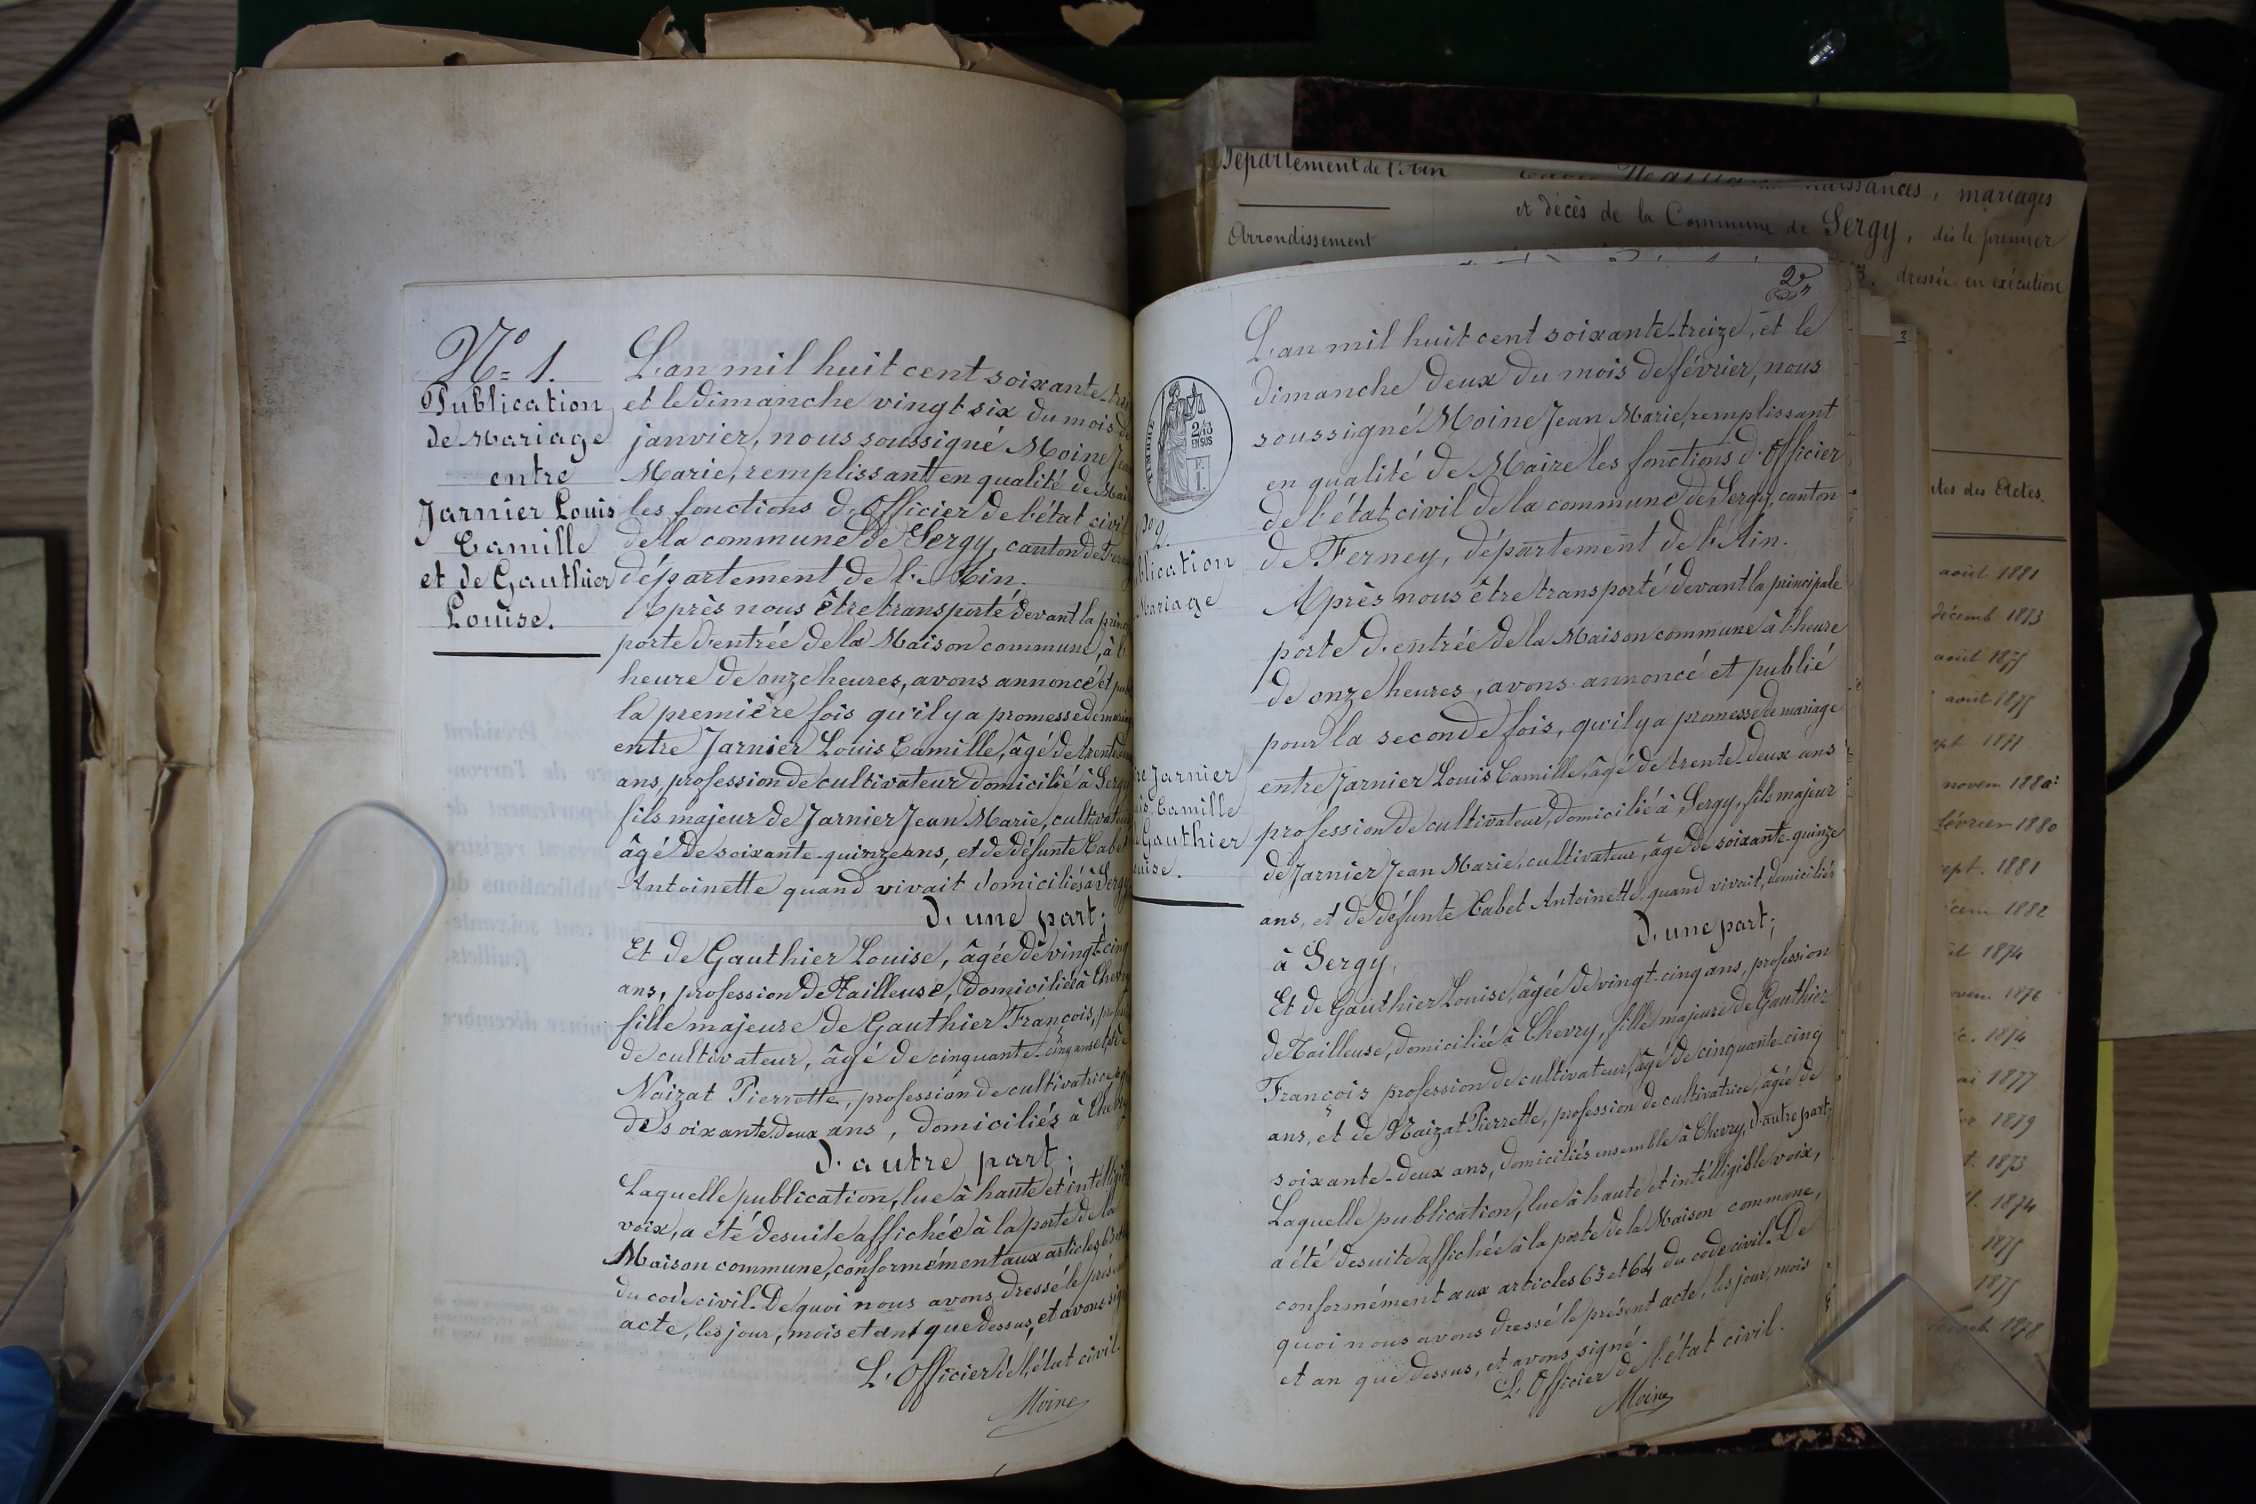 Nº 1.
Publication
de Mariage
entre
Jarnier Louis
Camille
et de Gauthier
Louise.
L'an mil huit cent soixante
et le dimanche vingt six du mois de
janvier, nous soussigné Moine
Marie, remplissant en qualité de
les fonctions d'Officier de l'état civil
de la commune de Sergy, canton de
département de l'Ain.
Après nous être transporté devant la
porte d'entrée de la Maison commune, à
heure de onze heures, avons annoncé et
la première fois qu'il y a promesse de
entre Jarnier Louis Camille, âgé de
ans, profession de cultivateur domicilié à Sergy
fils majeur de Jarnier Jean Marie,
âgé de soixante-quinze ans, et de défunte Cabet
Antoinette quand vivait domiciliés à Sergy
d'une part;
Et de Gauthier Louise, âgée de vingt-cinq
ans, profession de Tailleuse, domiciliée à
fille majeure de Gauthier François,
de cultivateur, âgé de cinquante-cinq ans et de
Naizat Pierrette, profession de cultivatrice
de soixante-deux ans, domiciliés à
d'autre part;
Laquelle publication, lue à haute et
voix, a été desuite affichée à la porte de la
Maison commune, conformément aux articles 63
du code civil. De quoi nous avons dressé le
acte, les jour, mois et an que dessus, et avons
L'Officier de l'état civil.
Moine
Département de l'Ain
naissances, mariages
et décès de la Commune de Sergy, dès le premier
Arrondissement
dressée en exécution
2
2/10
EN SUS
2.
Mariage
Jarnier
Camille
Gauthier
L'an mil huit cent soixante-treize, et le
dimanche deux du mois de février, nous
soussigné Moine Jean Marie, remplissant
en qualité de Maire les fonctions d'Officier
de l'état civil de la commune de Sergy, canton
de Ferney, département de l'Ain.
Après nous être transporté devant la principale
porte d'entrée de la Maison commune à l'heure
de onze heures, avons annoncé et publié
pour la seconde fois, qu'il y a promesse de mariage
entre Jarnier Louis Camille, âgé de trente-deux ans
profession de cultivateur, domicilié à Sergy, fils majeur
de Jarnier Jean Marie, cultivateur, âgé de soixante-quinze
ans, et de défunte Cabet Antoinette quand vivait, domiciliés
à Sergy,
d'une part;
Et de Gauthier Louise, âgée de vingt-cinq ans, profession
de Tailleuse, domiciliée à Chevry, fille majeure de Gauthier
François profession de cultivateur, âgé de cinquante-cinq
ans, et de Naizat Pierrette, profession de cultivatrice, âgée de
soixante-deux ans, domiciliés ensemble à Chevry, d'autre part;
Laquelle publication, lue à haute et intélligible voix,
a été desuite affichée à la porte de la Maison commune,
conformément aux articles 63 et 64 du code civil. De
quoi nous avons dressé le présent acte, les jour, mois
et an que dessus, et avons signé.
L'Officier de l'état civil.
Moine
des Actes.
août 1881
décemb 1873
août 1875
août 1875
1877
novem 1880
février 1880
sept. 1881
1882
1874
1876
1874
1877
1879
1873
1874
1875
1875
1878